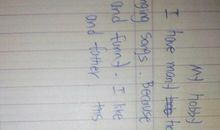 My hobby
I have many
nging songs. Because
and funny. I like
and father.